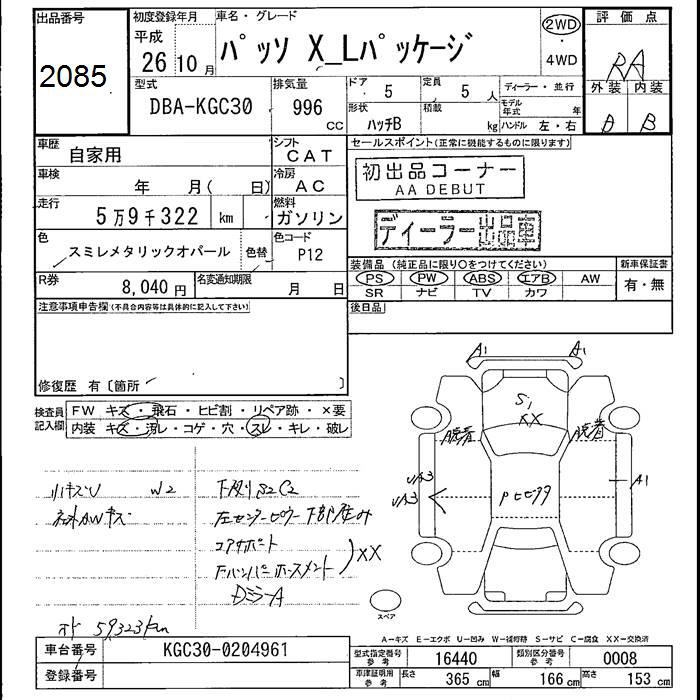 出品番号
2085
初度登録年月
平成
26年10月
車名・グレード
パッソ X_Lパッケージ
2WD
・
4WD
評価点
RA
外装 内装
B
型式
DBA-KGC30
排気量
996
CC
ドア
5
定員
5 人
形状
ハッチB
積載
kg
ディーラー・並行
モデル年式 年
ハンドル 左・右
車歴
自家用
シフト
CAT
車検
年 月( 日)
冷房
AC
走行
5万9千322 km
燃料
ガソリン
色
スミレメタリックオパール
色替
色コード
P12
R券
8,040 円
名変通知期限
月 日
セールスポイント(正常に機能するものに限ります)
初出品コーナー
AA DEBUT
ディーラー出品車
装備品 (純正品に限り○をつけてください)
新車保証書
PS PW ABS エアB AW
SR ナビ TV カワ
有・無
後日品
注意事項申告欄(不具合内容等は具体的に記入して下さい)
修復歴 有〔箇所 〕
検査員記入欄
FW キズ・飛石・ヒビ割・リペア跡・×要
内装 キズ・汚レ・コゲ・穴・スレ・キレ・破レ
小キズU W2
下廻りS2C2
左センターピラー下部凹み
コアサポート
XX
DミラーA
59323km
A1
A1
S1
XX
脱着
脱着
A1
スペア
A―キズ E―エクボ U―凹み W―補修跡 S―サビ C―腐食 XX―交換済
車台番号
KGC30-0204961
登録番号
型式指定番号
参考
16440
類別区分番号
参考
0008
車庫証明用
参考
長さ
365 cm
幅
166 cm
高さ
153 cm